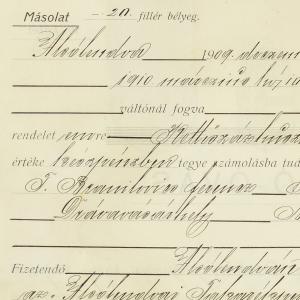 Másolat -20 fillér bélyeg.
Alsólendva 1909. deczem
1910 márczius hó 10
váltónál fogva
rendelet emre Kettőszáz husz
értéke készpénzben tegye számolásba tud
T.
Dráva vásárhely
Fizetendő Alsólendván
az Alsólendvai Takarék